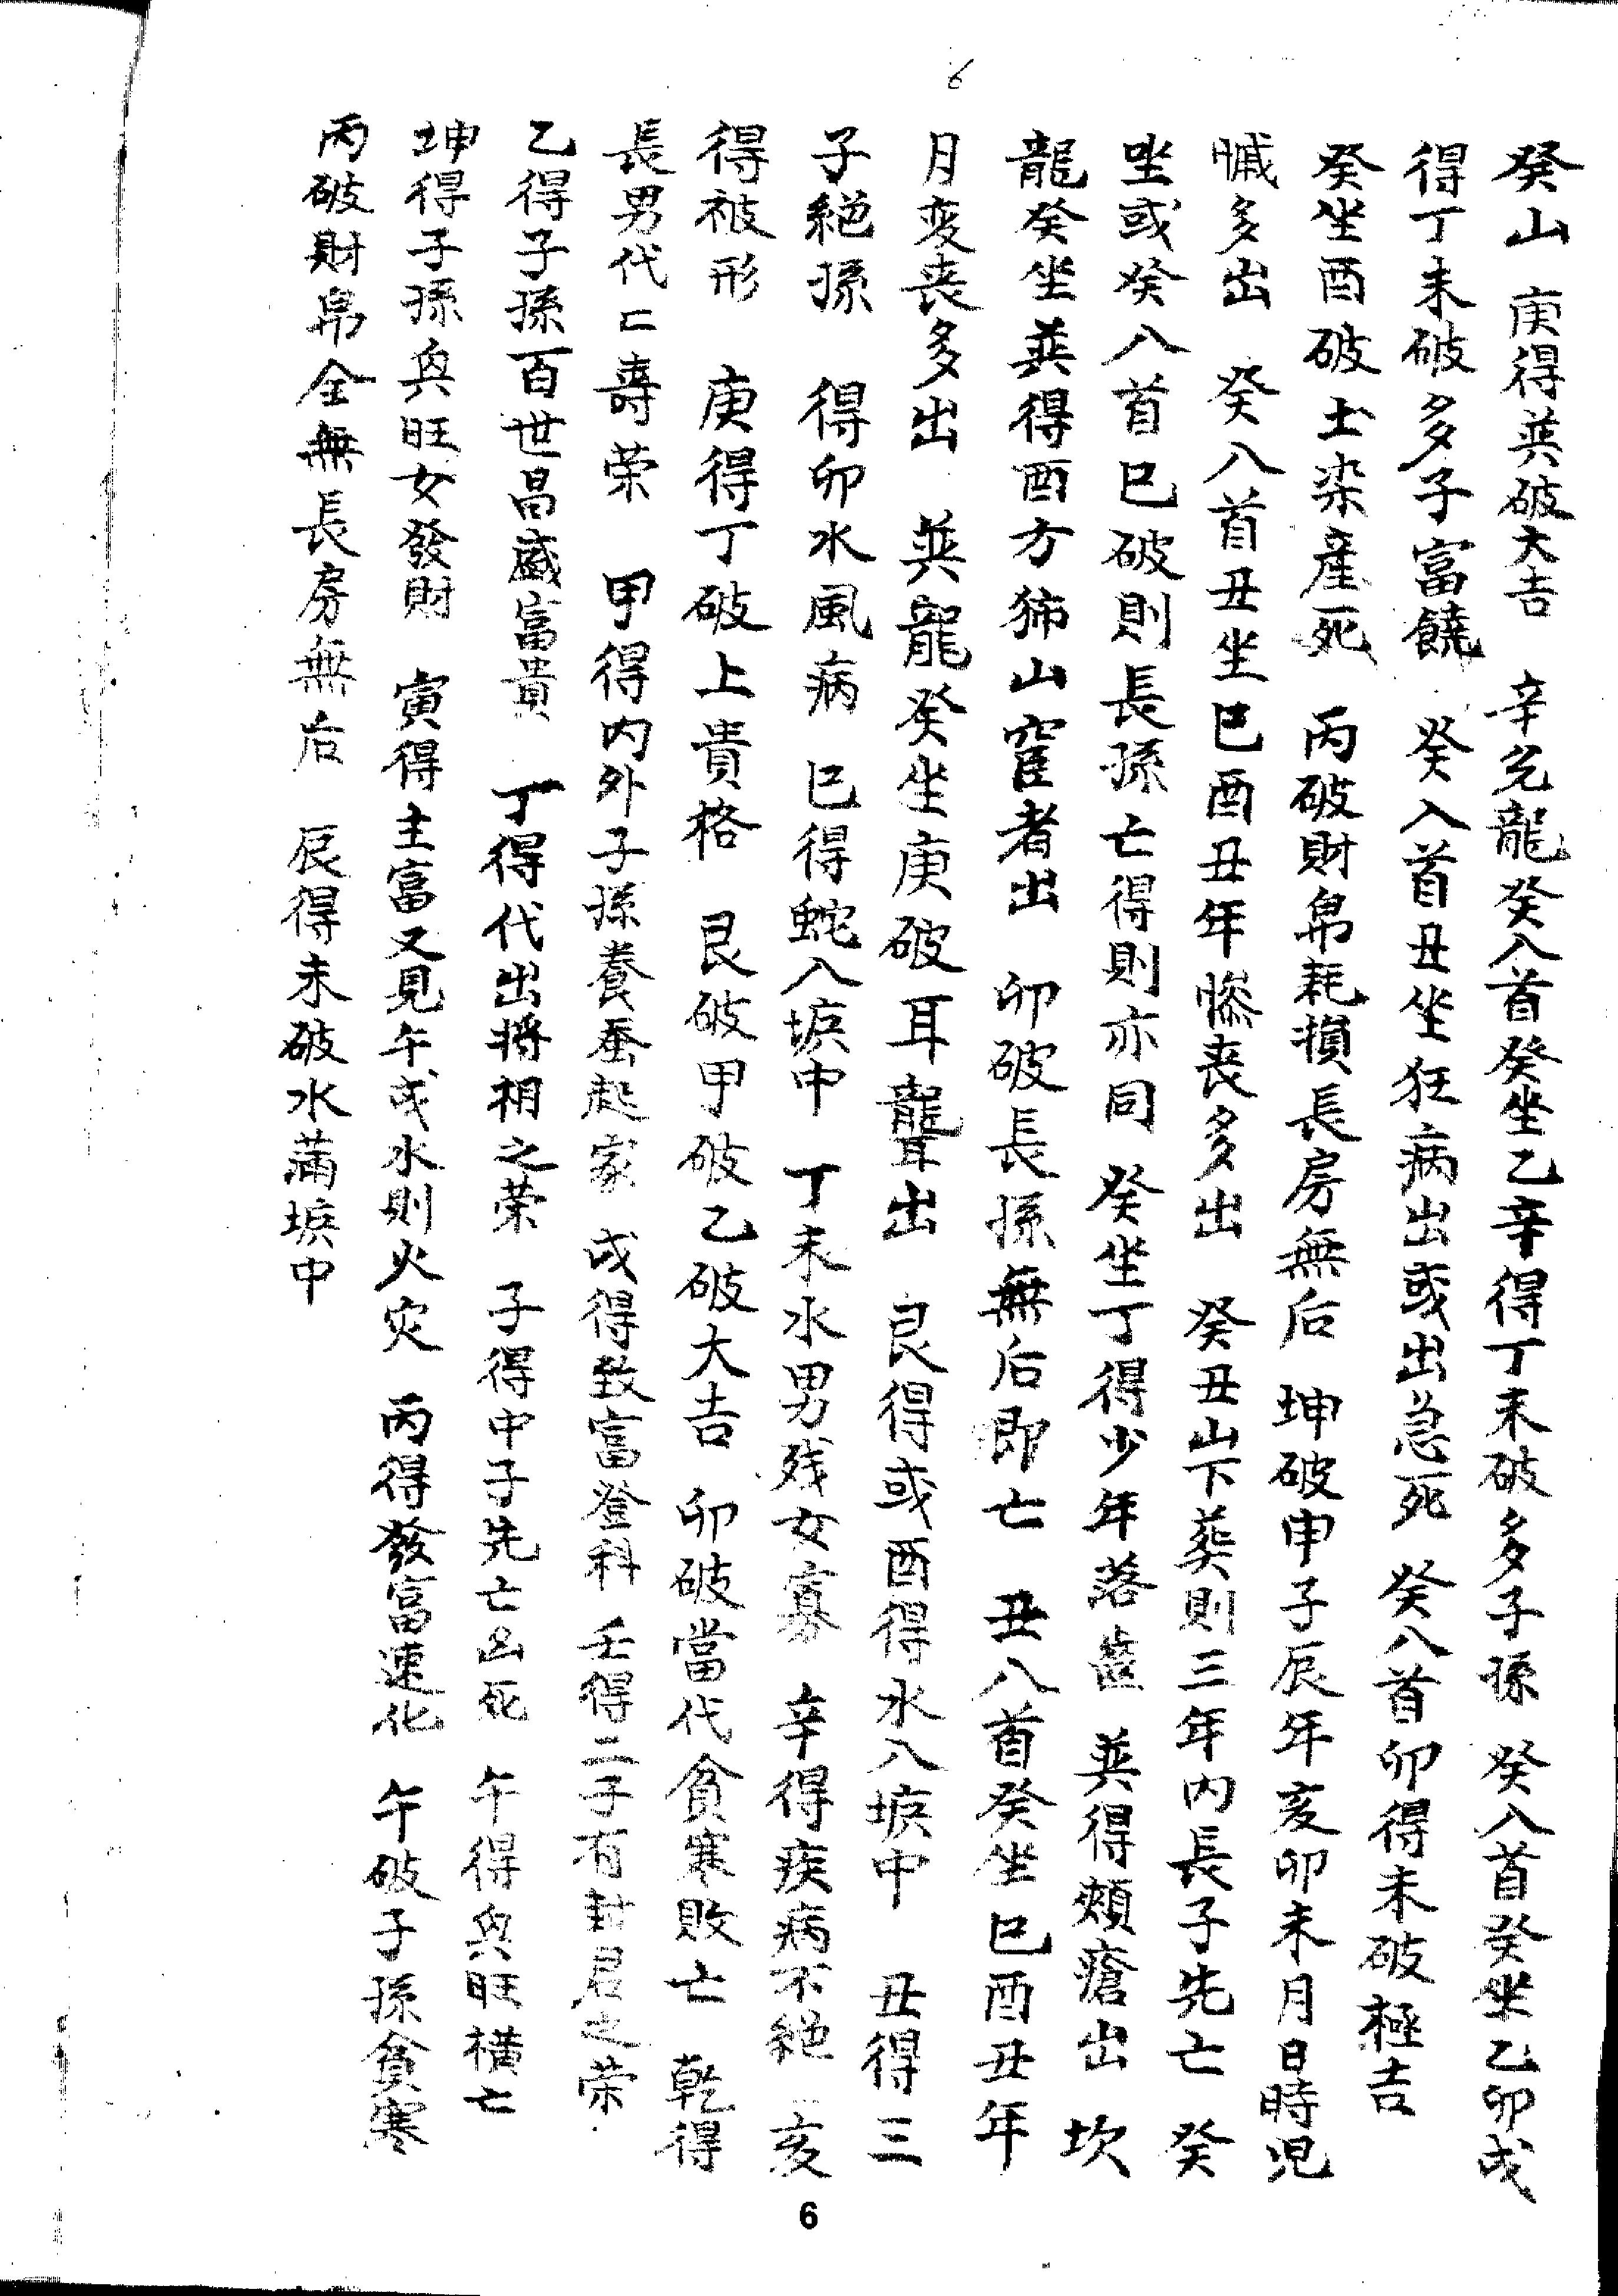 6
癸山 庚得巽破大吉 辛兌龍癸入首癸坐乙辛得丁未破多子孫 癸入首癸坐乙卯戌
得丁未破多子富饒 癸入首丑坐狂病出或出急死 癸八首卯得未破極吉
癸坐酉破土染産死 丙破財帛耗損長房無后 坤破申子辰年亥卯未月日時児
憾多出 癸八首丑坐巳酉丑年慘丧多出 癸丑山下葬則三年內長子先亡 癸
坐或癸八首巳破則長孫亡得則亦同 癸坐丁得少年落齒 巽得頰瘡出 坎
龍癸坐巽得酉方狮山窟者出 卯破長孫無后即亡 丑八首癸坐巳酉丑年
月変丧多出 巽龍癸坐庚破耳聾出 艮得或酉得水入塚中 丑得三
子絕孫 得卯水風病 巳得蛇入塚中 丁未水男残女寡 辛得疾病不絕 亥
得被形 庚得丁破上貴格 艮破甲破乙破大吉 卯破當代貧寒敗亡 乾得
長男代匕壽荣 甲得內外子孫養蚕起家 戌得致富登科 壬得二子有封君之荣
乙得子孫百世昌盛富貴 丁得代出將相之荣 子得中子先亡凶死 午得興旺橫亡
坤得子孫興旺女發財 寅得主富又見午戌水則火灾 丙得發富速化 午破子孫貧寒
丙破財帛全無長房無后 辰得未破水滿塚中
6